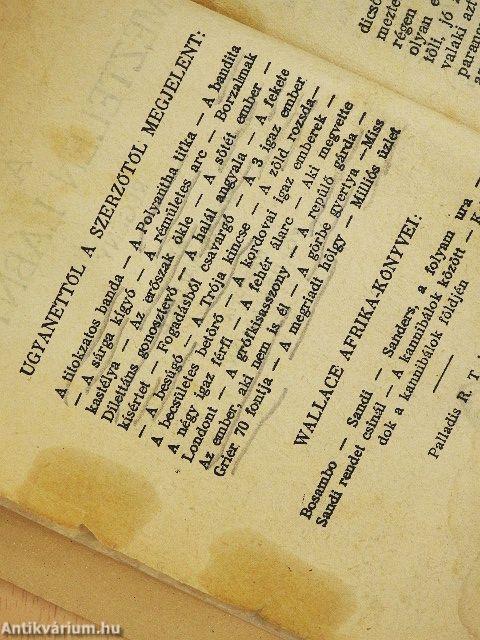 UGYANETTŐL A SZERZŐTŐL MEGJELENT:
A titokzatos banda — A Polyantha titka — A bandita
— A sárga kigyó — A rémületes arc — Borzalmak
kastélya — Az erőszak ökle — A sötét ember —
Dilettáns gonosztevő — A halál angyala — A fekete
kísértet — Fogadásból csavargó — A 3 igaz ember
— A besúgó — A Trója kincse — A zöld rozsda—
A becsületes betörő — A kordovai igaz emberek —
A négy igaz férfi — A fehér álarc — Aki megvette
Londont — A grófkisasszony — A repülő gárda —
Az ember, aki nem is él — A görbe gyertya —Miss
Grier 70 fontja — A megriadt hölgy — Milliós üzlet
WALLACE AFRIKA-KÖNYVEI:
Bosambo — Sandi — Sanders, a folyam ura —
Sandi rendet csinál — A kannibálok között — K
dok a kannibálok földjén
Palladis R. T.
dicső
mezte
régen
olyan e
töli, jó
valaki azt
parang
Antikvárium.hu